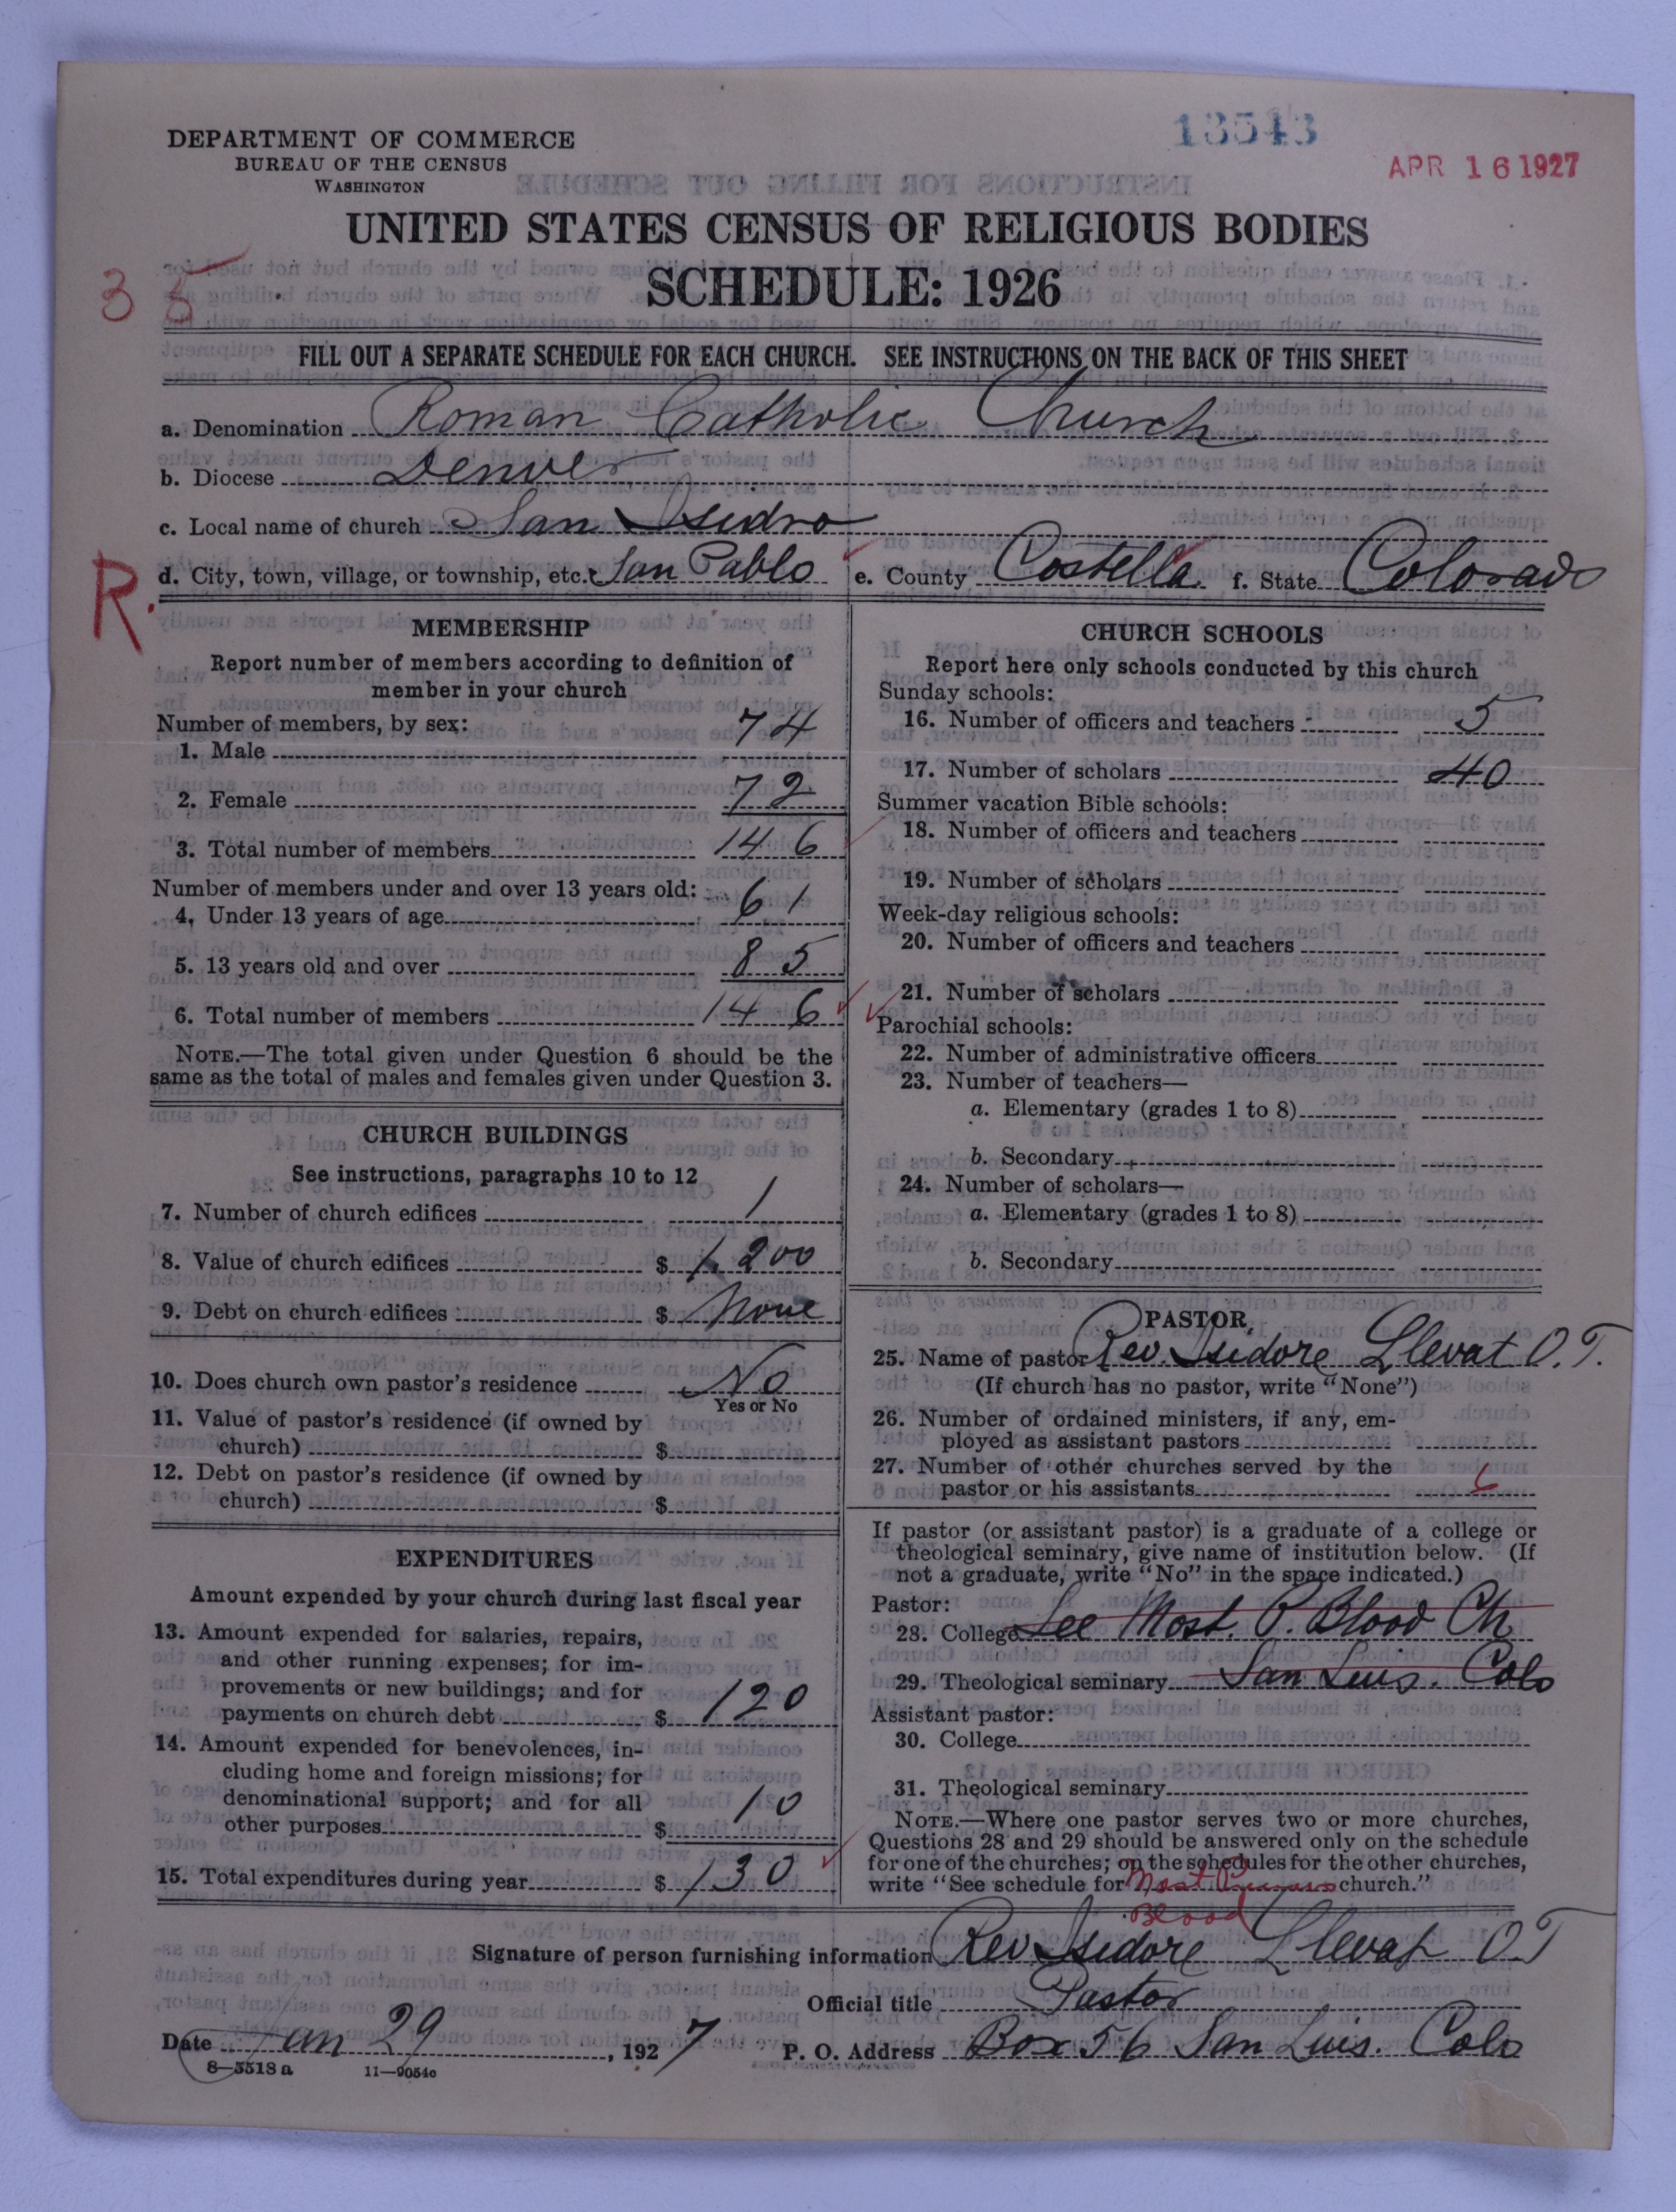 13543
APR 16 1927
DEPARTMENT OF COMMERCE
BUREAU OF THE CENSUS
WASHINGTON
UNITED STATES CENSUS OF RELIGIOUS BODIES
SCHEDULE: 1926
35
FILL OUT A SEPARATE SCHEDULE FOR EACH CHURCH. SEE INSTRUCTIONS ON THE BACK OF THIS SHEET
a. Denomination Roman Catholic Church
b. Diocese Denver
c. Local name of church San Isidro
R.
d. City, town, village, or township, etc. San Pablo e. County Costella f. State Colorado
MEMBERSHIP
Report number of members according to definition of
member in your church
Number of members, by sex:
1. Male 74
2. Female 72
3. Total number of members 146
Number of members under and over 13 years old:
4. Under 13 years of age 61
5. 13 years old and over 85
6. Total number of members 146
NOTE.—The total given under Question 6 should be the
same as the total of males and females given under Question 3.
CHURCH BUILDINGS
See instructions, paragraphs 10 to 12
7. Number of church edifices 1
8. Value of church edifices $ 1,200
9. Debt on church edifices $ None
10. Does church own pastor's residence No
Yes or No
11. Value of pastor's residence (if owned by
church) $
12. Debt on pastor's residence (if owned by
church) $
EXPENDITURES
Amount expended by your church during last fiscal year
13. Amount expended for salaries, repairs,
and other running expenses; for im-
provements or new buildings; and for
payments on church debt $ 120
14. Amount expended for benevolences, in-
cluding home and foreign missions; for
denominational support; and for all
other purposes $ 10
15. Total expenditures during year $ 130
CHURCH SCHOOLS
Report here only schools conducted by this church
Sunday schools:
16. Number of officers and teachers 5
17. Number of scholars 40
Summer vacation Bible schools:
18. Number of officers and teachers
19. Number of scholars
Week-day religious schools:
20. Number of officers and teachers
21. Number of scholars
Parochial schools:
22. Number of administrative officers
23. Number of teachers—
a. Elementary (grades 1 to 8)
b. Secondary
24. Number of scholars—
a. Elementary (grades 1 to 8)
b. Secondary
PASTOR
25. Name of pastor Rev. Isidore Llevat O.T.
(If church has no pastor, write "None")
26. Number of ordained ministers, if any, em-
ployed as assistant pastors
27. Number of other churches served by the
pastor or his assistants 6
If pastor (or assistant pastor) is a graduate of a college or
theological seminary, give name of institution below. (If
not a graduate, write "No" in the space indicated.)
Pastor:
28. College See Most. P. Blood Ch
29. Theological seminary San Luis. Colo
Assistant pastor:
30. College
31. Theological seminary
NOTE.—Where one pastor serves two or more churches,
Questions 28 and 29 should be answered only on the schedule
for one of the churches; on the schedules for the other churches,
write "See schedule for Most Precious church."
Blood
Signature of person furnishing information Rev Isidore Llevat O.T
Official title Pastor
Date Jan 29, 1927 P. O. Address Box 56 San Luis. Colo
8—5518 a 11—9054c